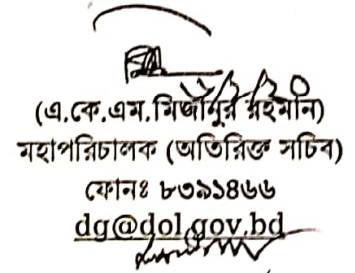 (এ.কে.এম.মিজানুর রহমান)
মহাপরিচালক (অতিরিক্ত সচিব)
ফোনঃ ৮৩৯১৪৬৬
dg@dol.gov.bd